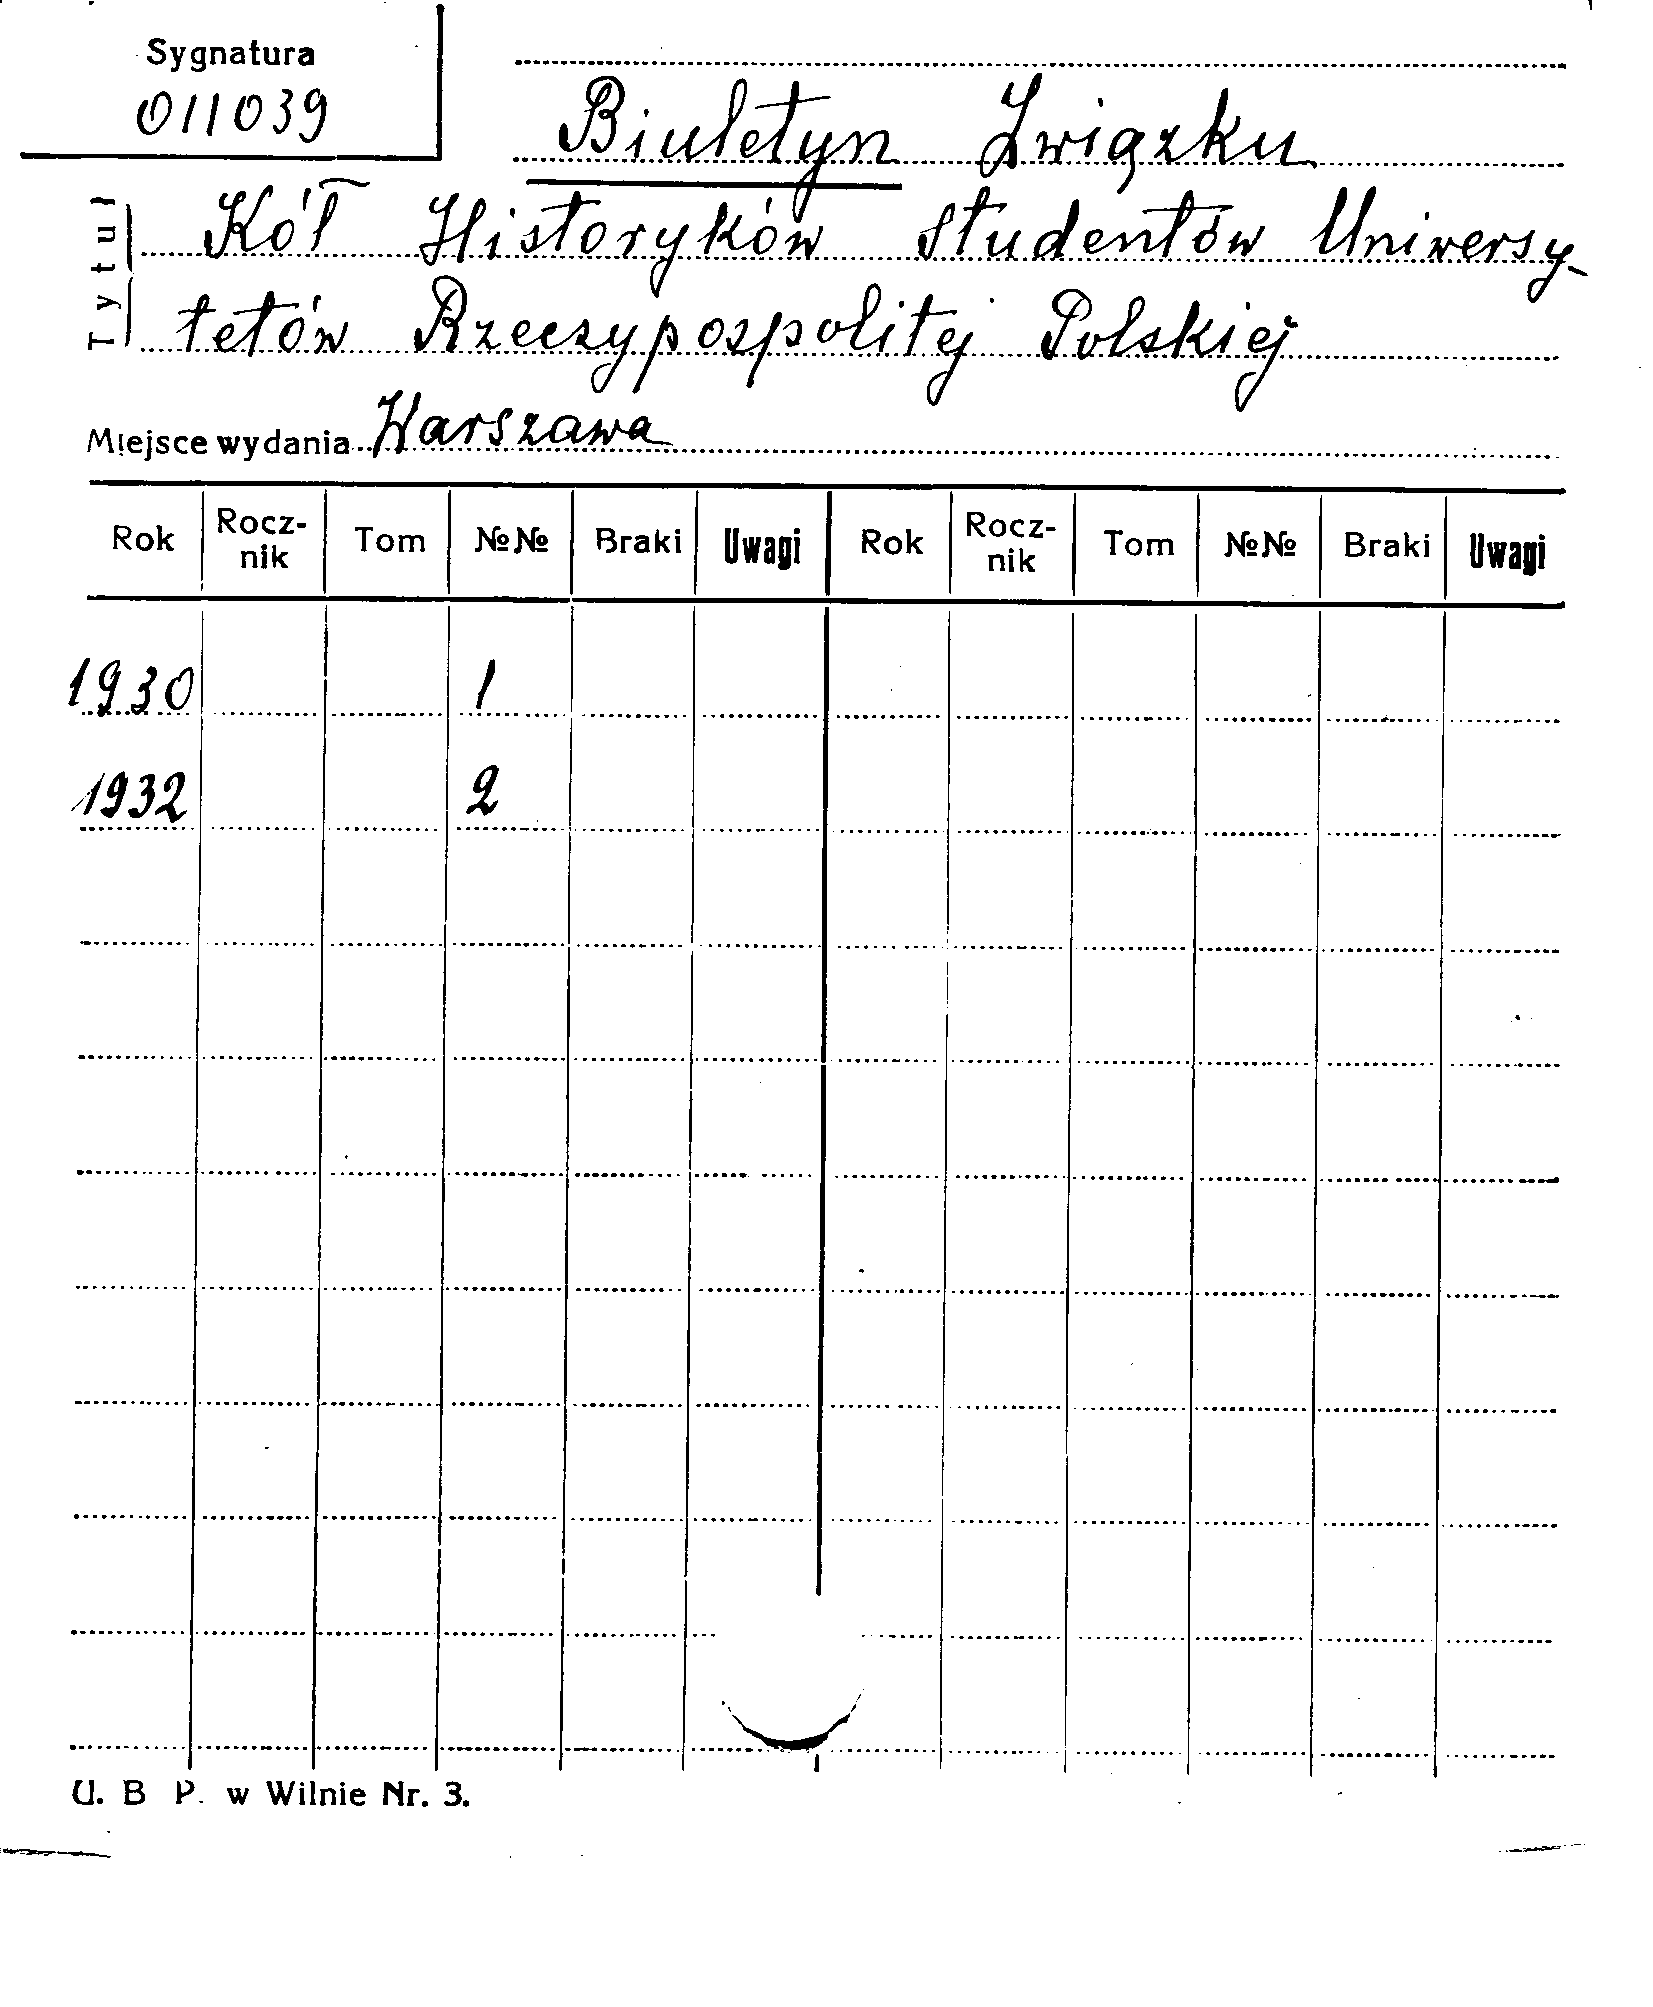 Sygnatura
011039
Biuletyn Związku
Tytuł
Kół Historyków Studentów Uniwersy-
tetów Rzeczypospolitej Polskiej
Miejsce wydania Warszawa
Rok Rocz-nik Tom №№ Braki Uwagi Rok Rocz-nik Tom №№ Braki Uwagi
1930 1
1932 2
U. B P. w Wilnie Nr. 3.